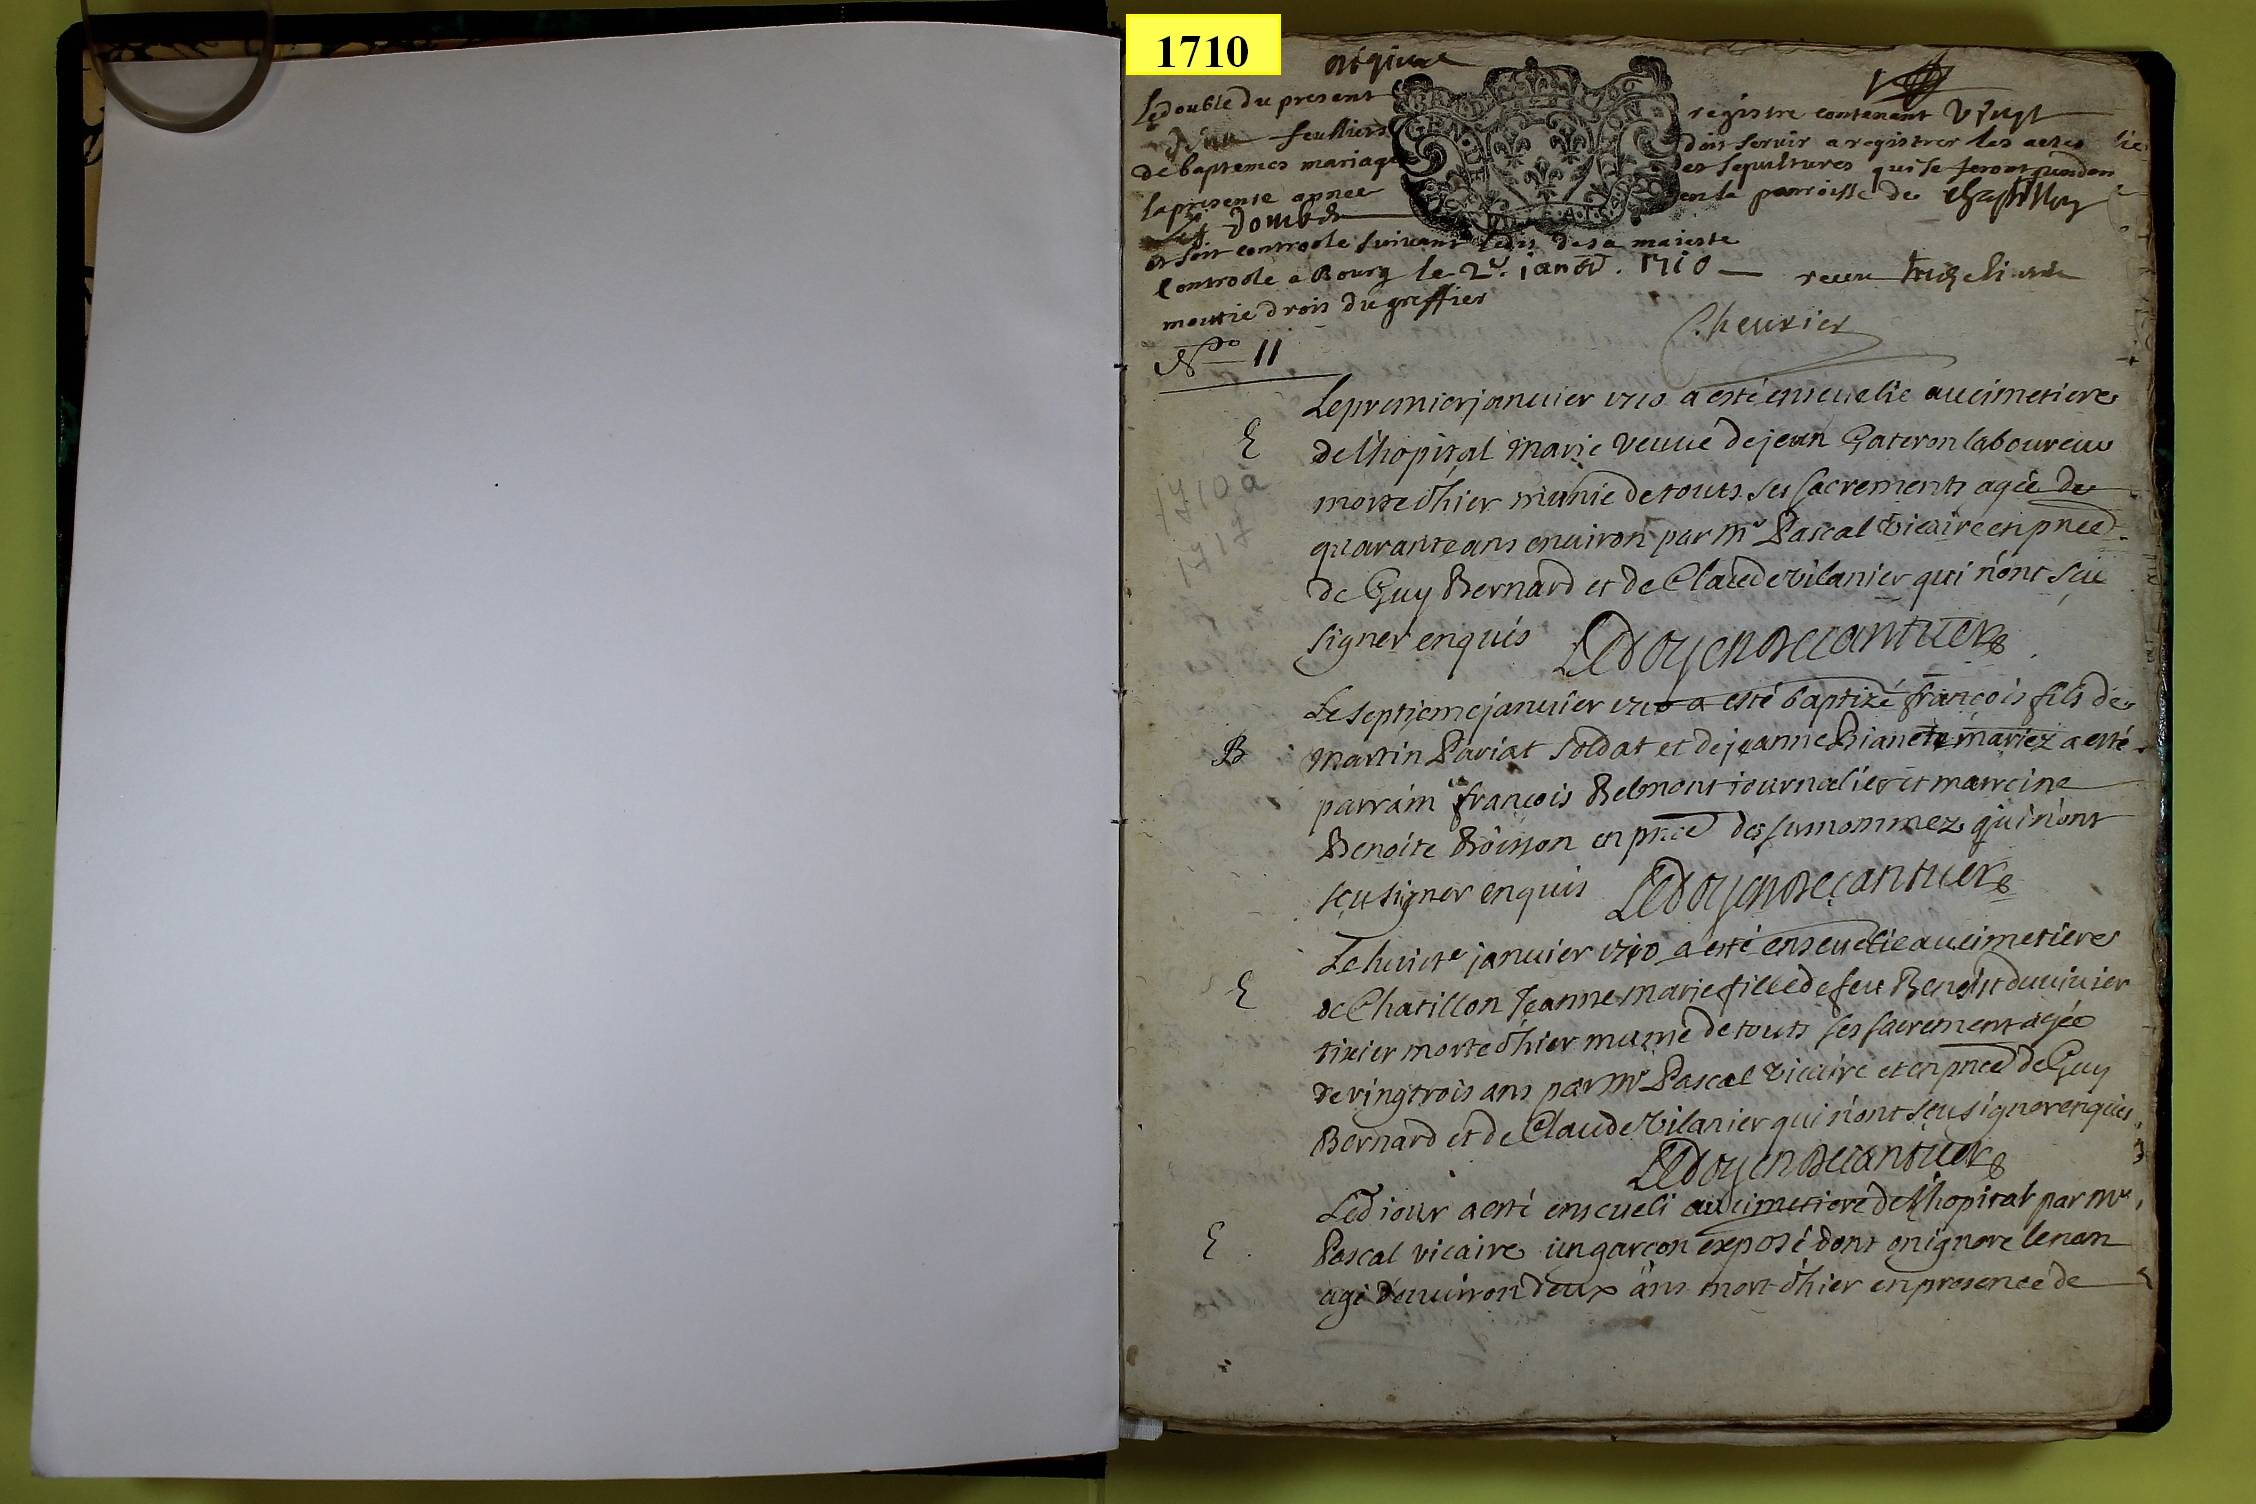 1710
Le double du present registre contenant vingt
feuilliers doit servir a registrer les actes
de baptemes mariages et sepultures qui se feront pendan
la presente annee en la parroisse de Chastillon
Dombes
et soit controole suivant ledis de sa maieste
Controole a Bourg le 2e. janvr. 1710 receu
moitie drois du greffier
Chevrier
No 11
Le premier januier 1710 a esté enseuelie au cimetiere
E
de l'hopital Marie veuue de jean Gateron laboureur
morte d'hier munie de touts ses sacrements agée de
1710 a
quarante ans enuiron par Mr Pascal vicaire en pnce
1717
de Guy Bernard et de Claude Vilanier qui n'ont sçu
signer enquis Ledoyen Decantuer
Le septieme januier 1710 a esté baptizé françois fils de
B
Martin Pariat soldat et de jeanne Bianete mariez a esté
parrain françois Belmont iournalier et marreine
Benoite Boisson en pnce des surnommez qui n'ont
sçu signer enquis Ledoyen Decantuer
Le huicte januier 1710 a esté enseuelie au cimetiere
E
de Chatillon Jeanne Marie fille de feu Benoist duuiuier
tixier morte d'hier munie de touts ses sacrement agée
de vingtrois ans par Mr Pascal vicaire et en pnce de Guy
Bernard et de Claude Vilanier qui n'ont sçu signer enquis
Ledoyen Decantuer
Led iour a esté enseueli au cimetiere de l'hopital par Mr
E
Pascal vicaire un garçon exposé dont on ignore le nom
agé d'enuiron deux ans mort d'hier en presence de